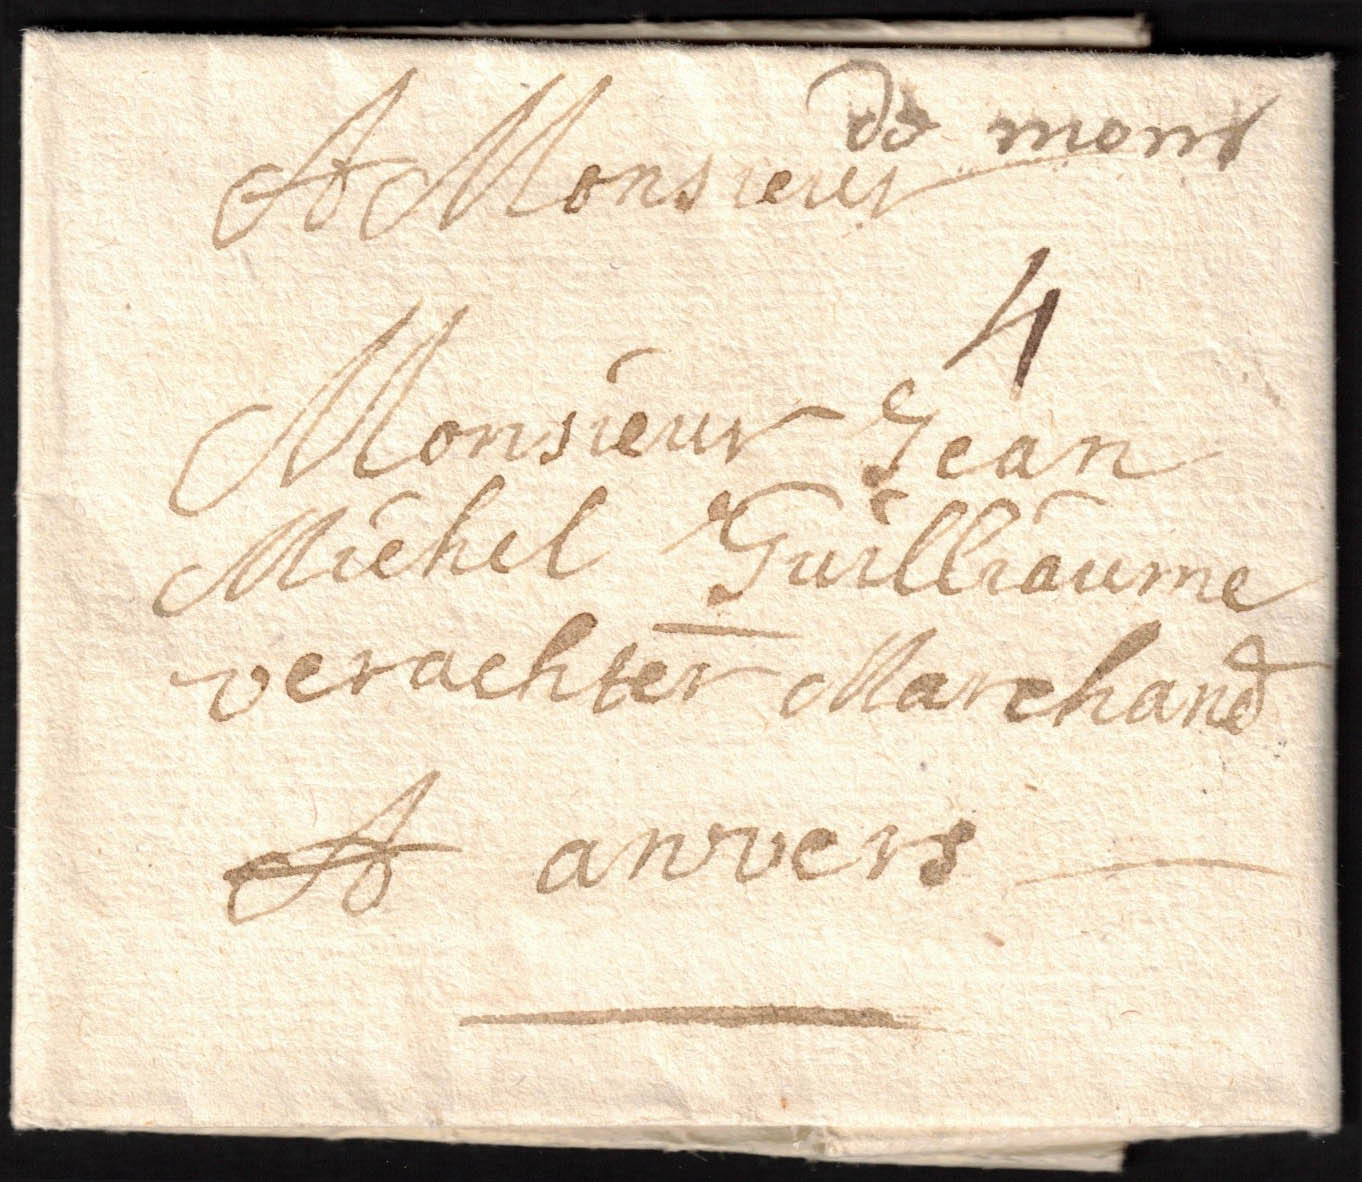 de mons
A Monsieur
4
Monsieur Jean
Michel Guilliaume
verachter Marchand
A anvers